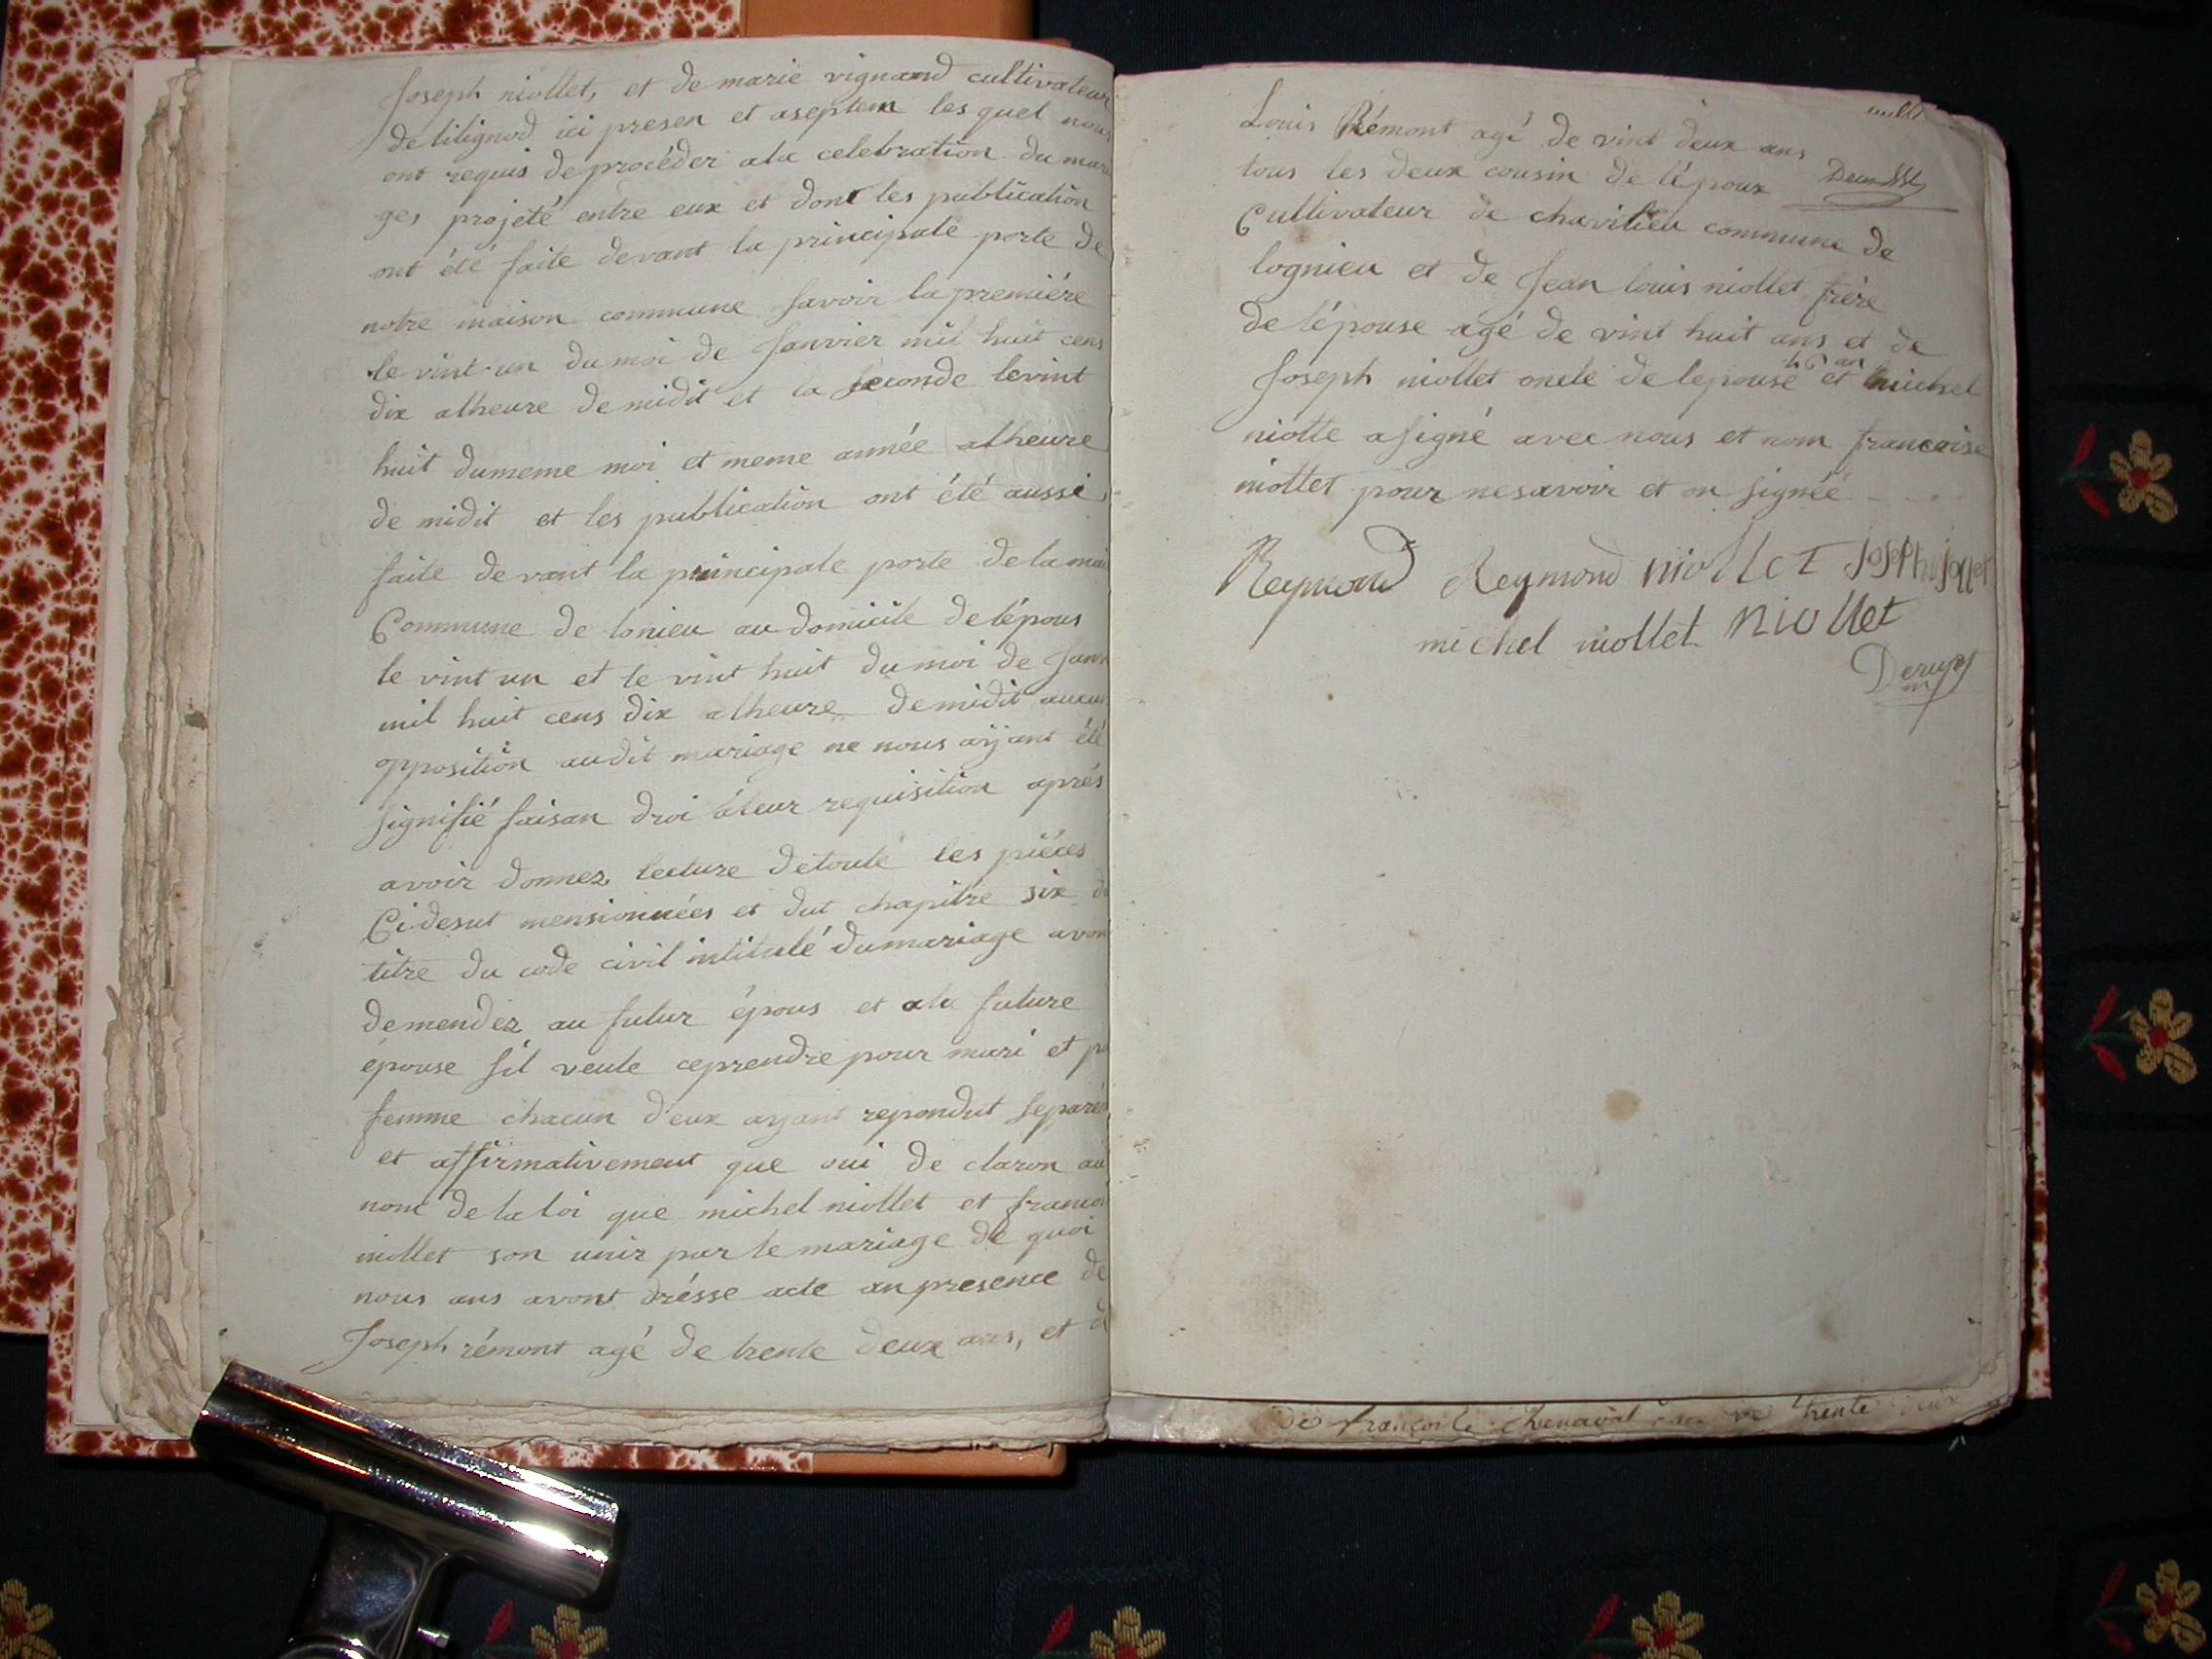 Joseph niollet, et de marie vignand cultivateur
de lilignod ici presen et aseptem les quel nous
ont requis de procéder ala celebration du mari
ges projeté entre eux et dont les publication
ont été faite devant la principale porte de
notre maison commune savoir la premiére
le vint-un du moi de Janvier mil huit cens
dix alheure de midit et la seconde le vint
huit dumeme moi et meme année alheure
de midit et les publication ont été aussi
faite devant la principale porte de la mai
Commune de lonieu au domicile de lépous
le vint un et le vint huit du moi de Janv
mil huit cens dix alheure de midit aucun
opposition audit mariage ne nous ayant été
signifié faisan droi áleur requisition aprés
avoir donnez lecture detoute les piéces
Cidesut mensionnées et dut chapitre six d
titre du code civil intitulé dumariage avon
demendez au futur épous et ala future
épouse sil veule ceprendre pour mari et p
femme chacun d'eux ayant repondut separé
et affirmativement que oui de claron au
nom de la loi que michel niollet et francoi
niollet son unir par le mariage de quoi
nous ans avont drésse acte an presence de
Joseph rémont agé de trente deux ans, et d
Louis Rémont agé de vint deux ans
tous les deux cousin de lépoux
Cultivateur de chavilieu commune de
lognieu et de Jean louis niollet frére
de lépouse agé de vint huit ans et de
46 an
Joseph niollet oncle de lepouse et michel
niolle asigné avec nous et nom francoise
niollet pour nesavoir et on signée
Reymond Reymond niollet Joseph niollet
michel niollet niollet
de françois chenaval trente deux